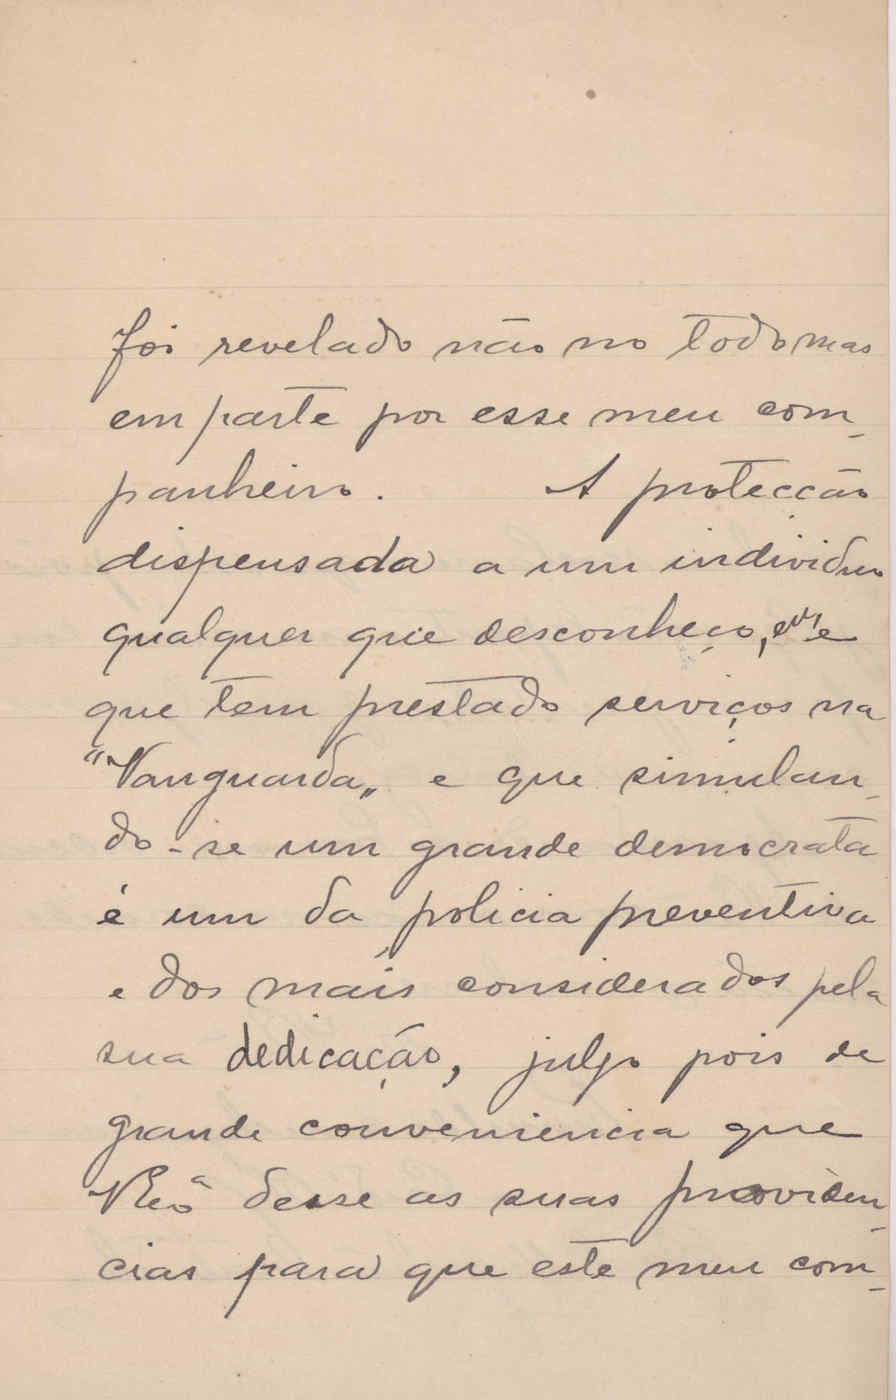 foi revelado não no todo mas
em parte por esse meu com-
panheiro. A protecção
dispensada a um individuo
qualquer que desconheço, e
que tem prestado serviços na
"Vanguarda„ e que simulan-
do-se um grande democrata
é um da policia preventiva
e dos mais considerados pela
sua dedicação, julgo pois de
grande conveniencia que
desse as suas providen-
cias para que este meu com-